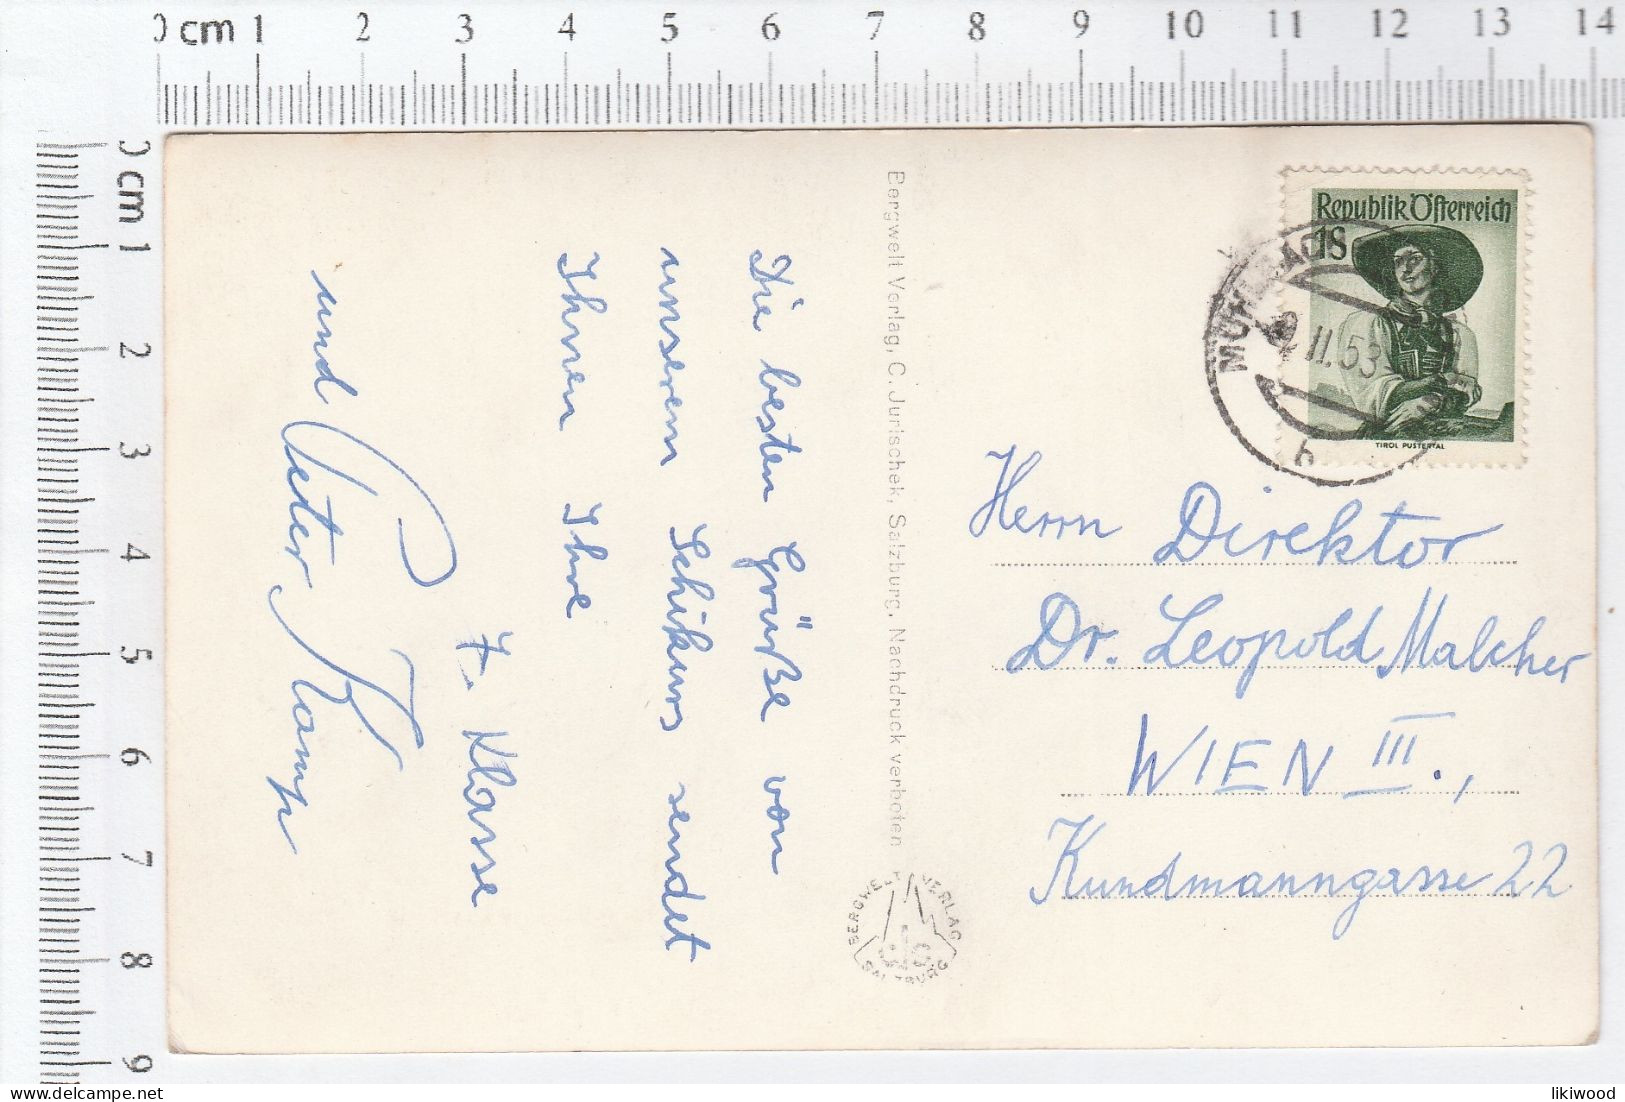 0 cm 1 2 3 4 5 6 7 8 9 10 11 12 13 14
0 cm 1 2 3 4 5 6 7 8 9
Die besten Grüße von
unserem Schikurs sendet
Ihnen Ihre
7. Klasse
und Peter Kamp
Bergwelt Verlag, C. Jurischek, Salzburg, Nachdruck verboten
BERGWELT VERLAG
SALZBURG
Republik Österreich
1S
TIROL PUSTERTAL
MÜHLBACH
II. 53
b
Herrn Direktor
Dr. Leopold Malcher
WIEN III.,
Kundmanngasse 22
likiwood